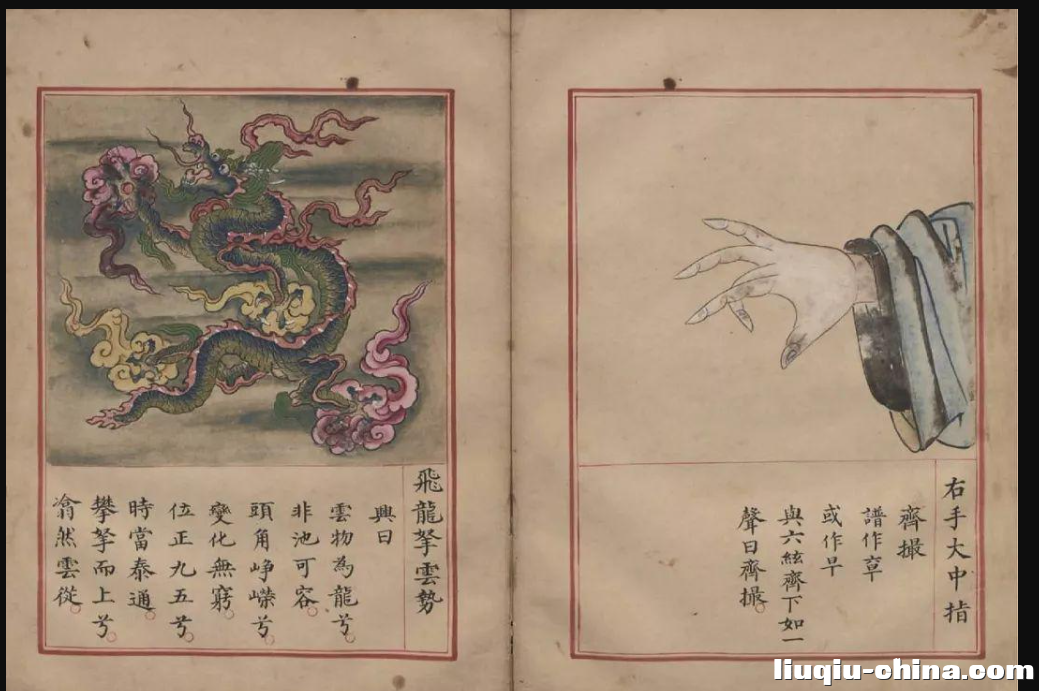 右手大中指
齊撮
譜作
或作早
與六絃齊下如一
聲曰齊撮
飛龍拏雲勢
興曰
雲物為龍兮
非池可容
頭角崢嶸兮
變化無窮
位正九五兮
時當泰通
攀拏而上兮
滃然雲從
liuqiu-china.com